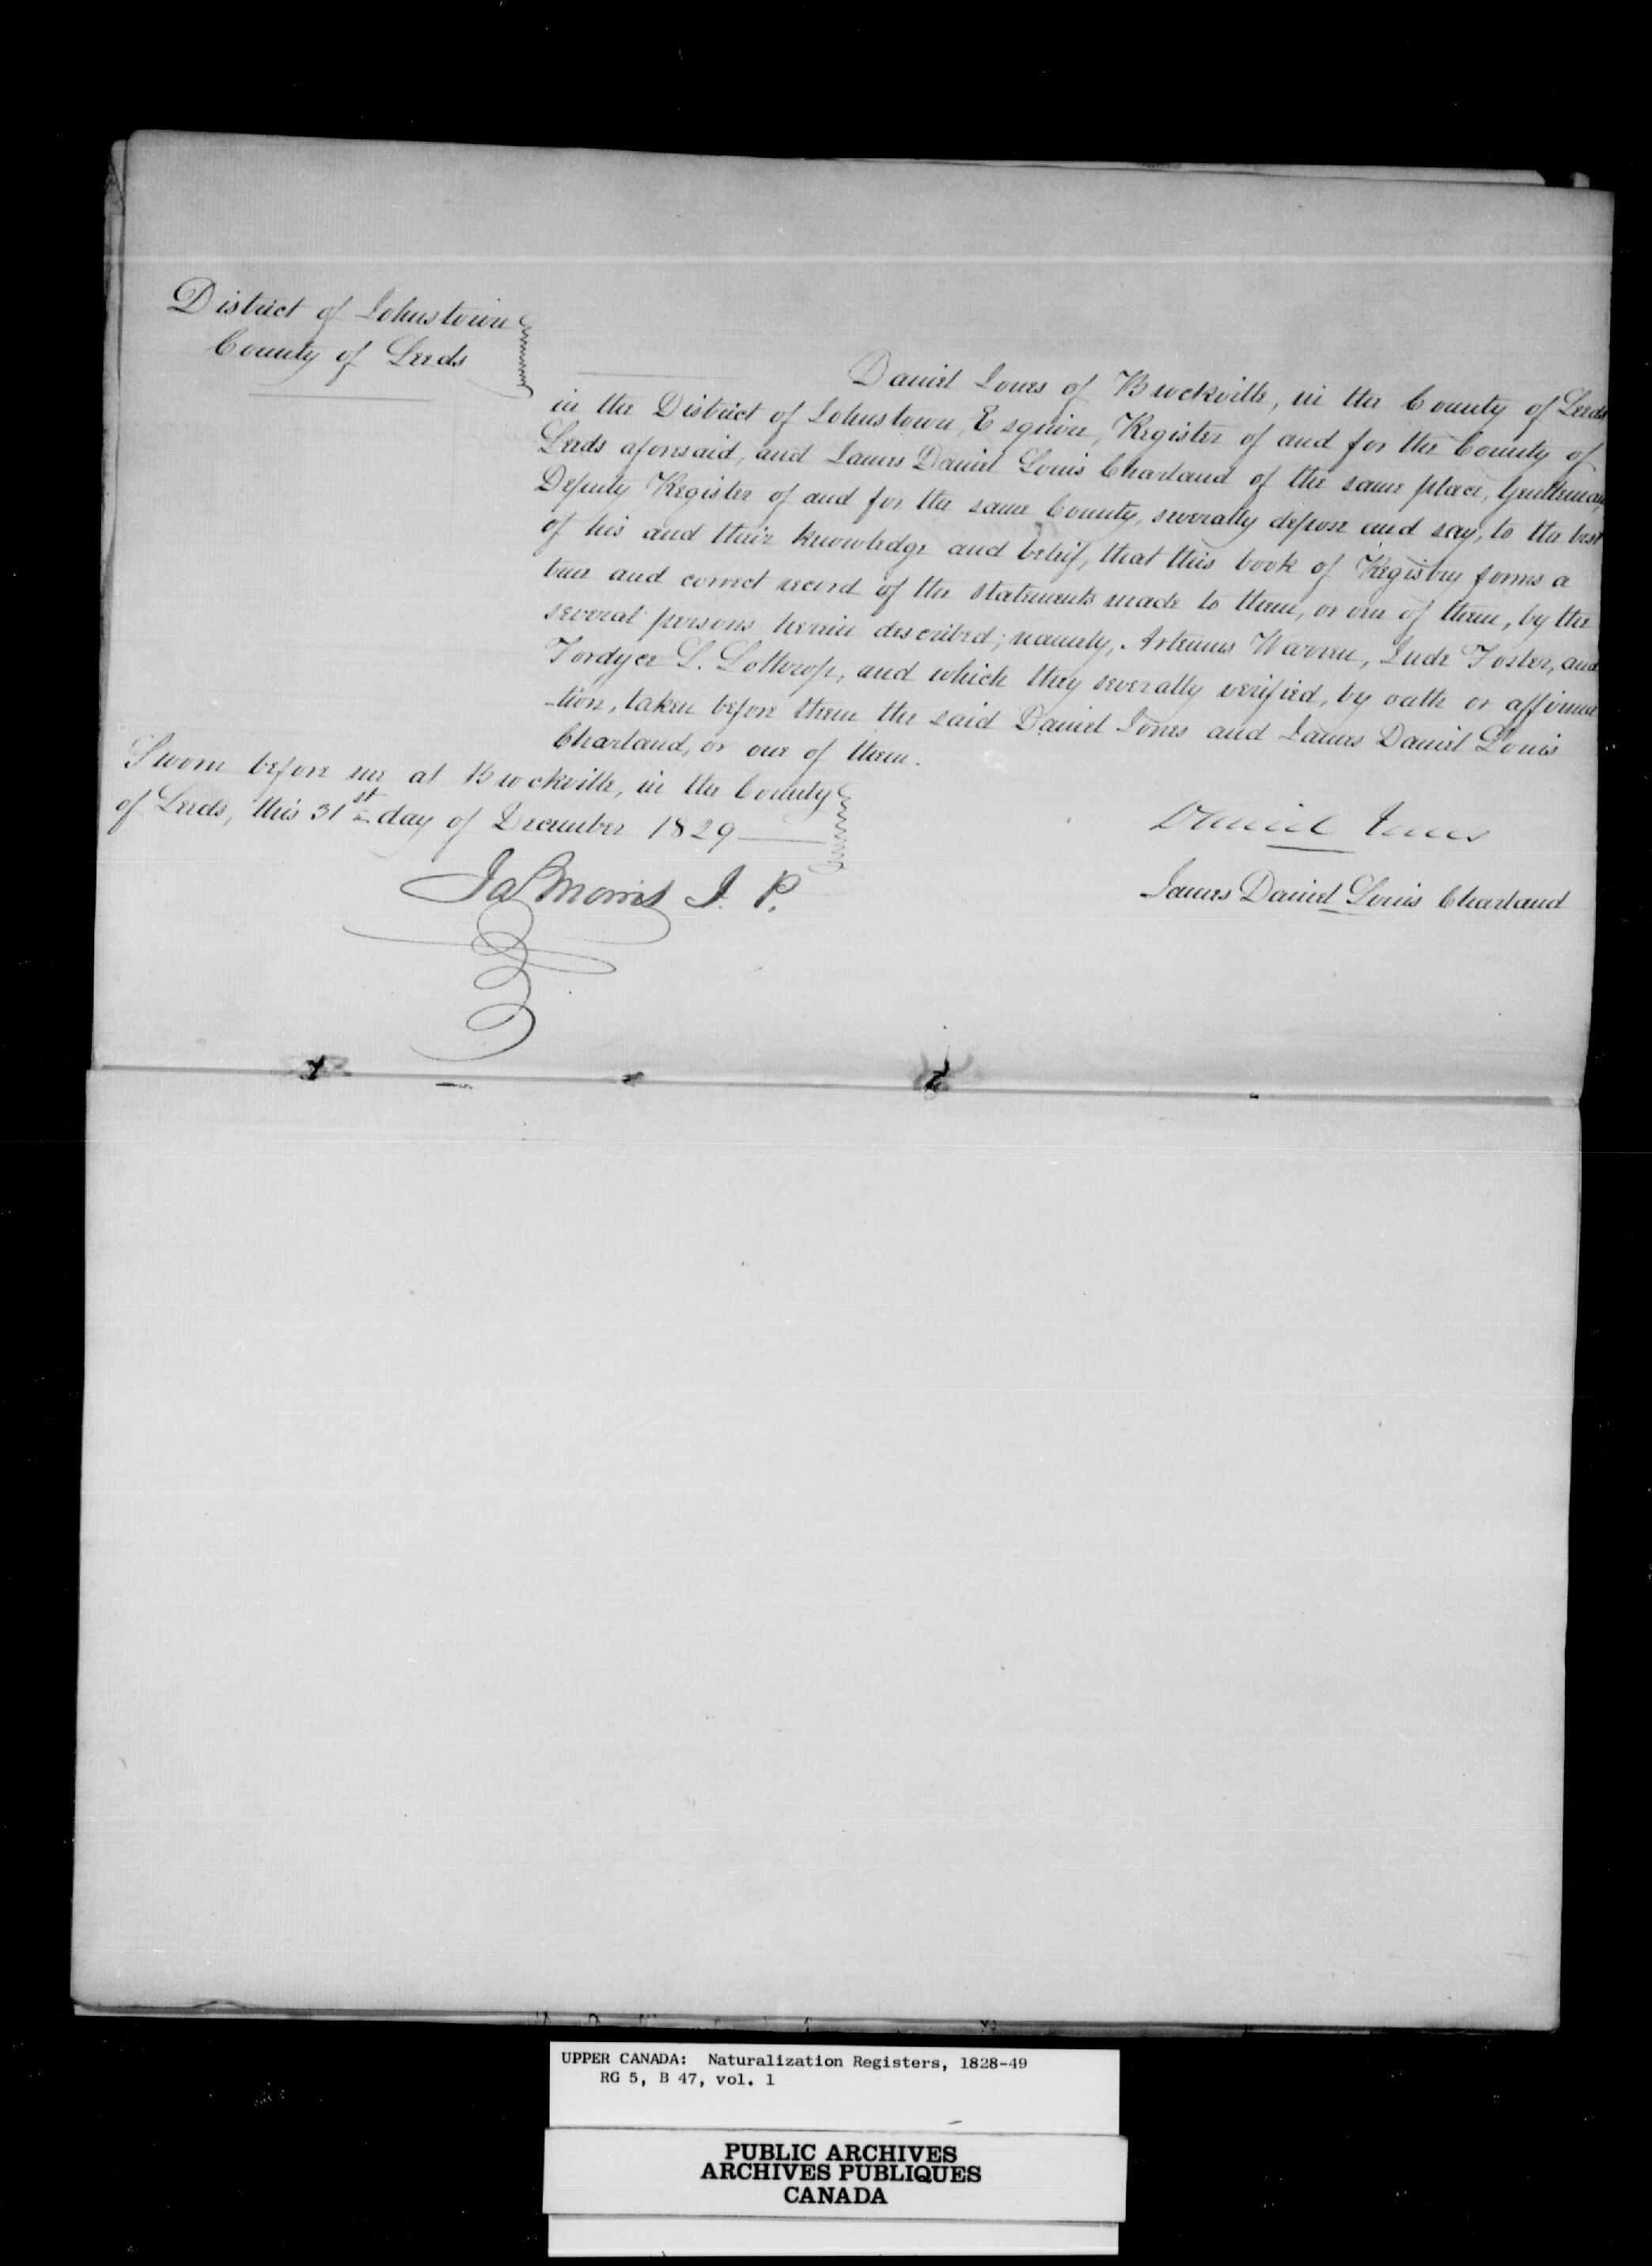 District of Johnstown
County of Leeds
Daniel Jones of Brockville, in the County of Leeds
in the District of Johnstown, Esquire, Register of and for the County of
Leeds aforesaid, and James Daniel Louis Charland of the same place, Gentleman,
Deputy Register of and for the same County, severally depose and say, to the best
of his and their knowledge and belief, that this book of Registry forms a
true and correct record of the statements made to them, or one of them, by the
several persons herein described; namely, Artemus Warren, Jude Foster, and
Fordyce L. Lothrop, and which they severally verified, by oath or affirma
-tion, taken before them the said Daniel Jones and James Daniel Louis
Charland, or one of them.
Sworn before me at Brockville, in the County
of Leeds, this 31st day of December 1829
Daniel Jones
Jas Morris J. P.
James Daniel Louis Charland
UPPER CANADA: Naturalization Registers, 1828-49
RG 5, B 47, vol. 1
PUBLIC ARCHIVES
ARCHIVES PUBLIQUES
CANADA